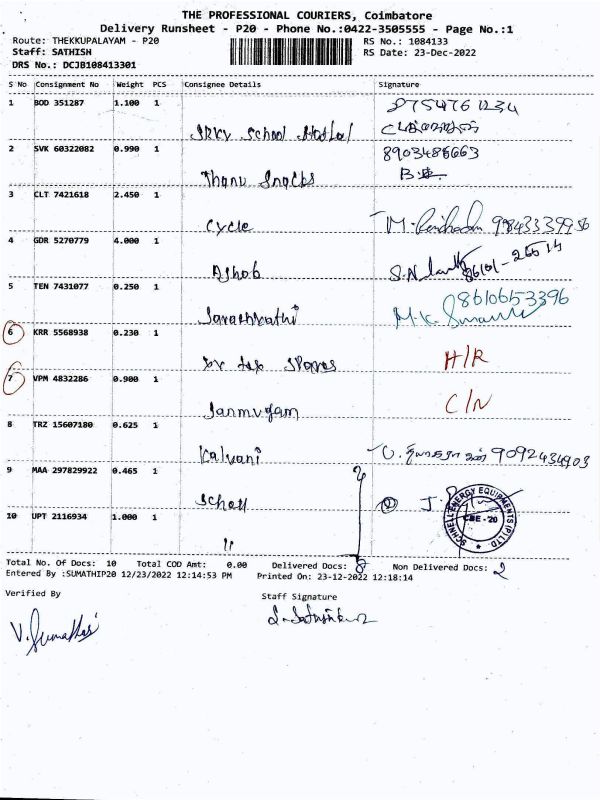 THE PROFESSIONAL COURIERS, Coimbatore
Delivery Runsheet - P20 - Phone No.:0422-3505555 - Page No.:1
Route: THEKKUPALAYAM - P20 RS No.: 1084133
Staff: SATHISH RS Date: 23-Dec-2022
DRS No.: DCJB108413301
S No Consignment No Weight PCS Consignee Details Signature
1 BOD 351287 1.100 1 8754761234
SRKV School Hostel
2 SVK 60322082 0.990 1 8903486663
Thanu Snacks
3 CLT 7421618 2.450 1
Cycle 99843339956
4 GDR 5270779 4.000 1
Ashok
5 TEN 7431077 0.250 1 8610653396
Sarathkathi
6 KRR 5568938 0.230 1
Spares H/R
7 VPM 4832286 0.900 1
Sanmugam C/N
8 TRZ 15607180 0.625 1
Kalvani 9092434903
9 MAA 297829922 0.465 1
Schnell
10 UPT 2116934 1.000 1
"
SCHNELL ENERGY EQUIPMENTS (P) LTD
CBE - 20
Total No. Of Docs: 10 Total COD Amt: 0.00 Delivered Docs: 8 Non Delivered Docs: 2
Entered By :SUMATHIP20 12/23/2022 12:14:53 PM Printed On: 23-12-2022 12:18:14
Verified By Staff Signature
V. Sumathi